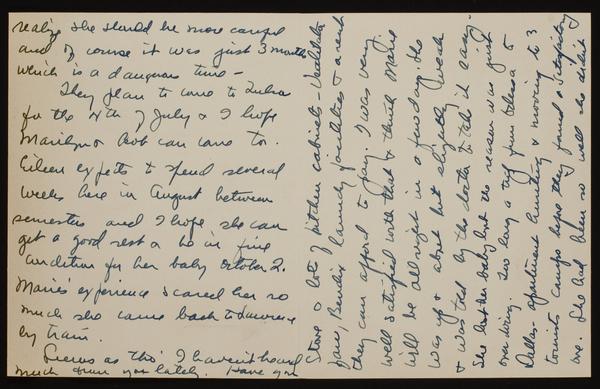 realize she should be more careful
and of course it was just 3 months
which is a dangerous time -
They plan to come to Tulsa
for the 4th of July & I hope
Marilyn & Bob can come to.
Eileen expects to spend several
weeks here in August between
semesters and I hope she can
get a good rest & be in fine
condition for her baby October 2.
Marie's experience scared her so
much she came back to Lawrence
by train.
Seems as tho' I haven't heard
much from you lately. Have you
stove & lots of kitchen cabinets, Ventilator
fans, Bendix laundry facilities & a rent
they can afford to pay. I was very
well satisfied with that & think Marie
will be allright in a few days. She
was up & about but slightly weak
& was told by the doctor to take it easy.
She lost her baby but the reason was just
over doing. Too long a trip from Odessa to
Dallas - apartment hunting & moving to 3
tourist camps before they found a satisfactory
one. She had been so well she didn't